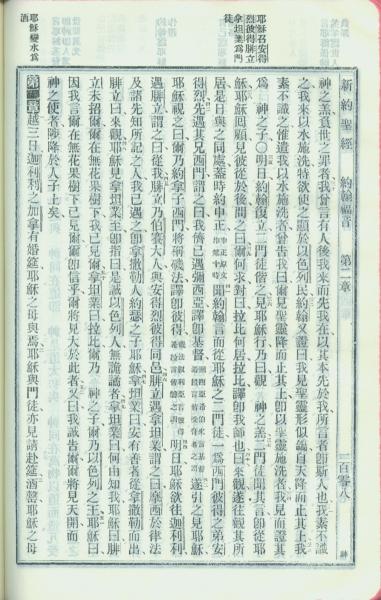 新約聖經 約翰福音 第二章 一百零八
耶穌召安得
烈彼得腓立
拿坦業爲門
徒
耶穌變水爲
酒
神之羔負世之罪者我曾言有人後我來而先我在以其本先於我所言者卽斯人也我素不識
之我來以水施洗特欲使之顯於以色列民約翰又證曰我見聖靈形似鴿自天降而止其上我
素不識之惟遣我以水施洗者曾告我曰爾見聖靈降而止其上卽以聖靈施洗者我見而證其
爲 神之子〇明日約翰復立二門徒偕之見耶穌行乃曰觀 神之羔二門徒聞其言卽從耶
穌耶穌回顧見彼從於後問之曰爾何求對曰拉比何居拉比譯卽我師也曰來觀遂往觀其所
居是日與之同處蓋時約申正申正原文作十時聞約翰言而從耶穌之二門徒一爲西門彼得之弟安
得烈先遇其兄西門謂之曰我儕已遇彌西亞譯卽基督遂引之見耶穌
耶穌視之曰爾乃約拿子西門將稱磯法譯卽彼得明日耶穌欲往迦利利
遇腓立謂之曰從我腓立乃伯賽大人與安得烈彼得同邑腓立遇拿坦業謂之曰摩西於律法
及諸先知所記之人我已遇之卽拿撒勒人約瑟之子耶穌拿坦業曰安有善者從拿撒勒而出
腓立曰來觀耶穌見拿坦業至卽指曰是誠以色列人無詭譎者拿坦業曰何由知我耶穌曰腓
立未招爾爾在無花果樹下我已見爾拿坦業曰拉比爾乃 神之子爾乃以色列之王耶穌曰
因我言爾在無花果樹下已見爾爾卽信乎爾將見大於此者又曰我誠告爾爾將見天開而
神之使者陟降於人子上矣
第二章越三日迦利利之加拿有婚筵耶穌之母與焉耶穌與門徒亦見請赴筵酒罄耶穌之母